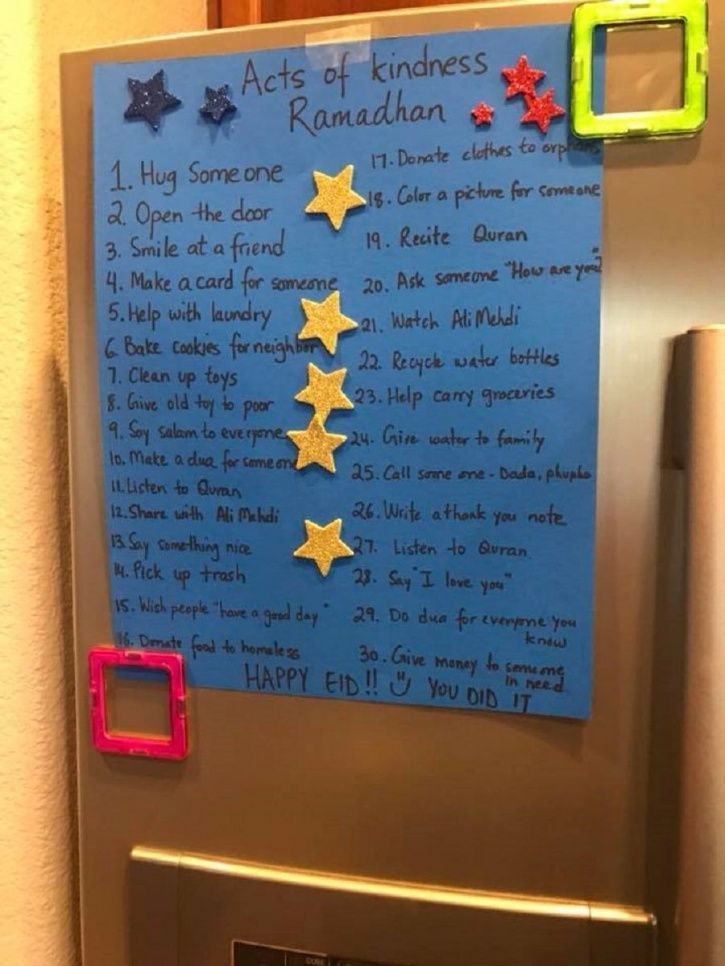 Acts of kindness
Ramadhan
1. Hug Someone
2. Open the door
3. Smile at a friend
4. Make a card for someone
5. Help with laundry
6. Bake cookies for neighbor
7. Clean up toys
8. Give old toy to poor
9. Say salam to everyone
10. Make a dua for someone
11. Listen to Quran
12. Share with Ali Mehdi
13. Say something nice
14. Pick up trash
15. Wish people "have a good day"
16. Donate food to homeless
17. Donate clothes to orphans
18. Color a picture for someone
19. Recite Quran
20. Ask someone "How are you?"
21. Watch Ali Mehdi
22. Recycle water bottles
23. Help carry groceries
24. Give water to family
25. Call some one - Dada, phupho
26. Write a thank you note
27. Listen to Quran
28. Say "I love you"
29. Do dua for everyone you
know
30. Give money to someone
in need
HAPPY EID!! YOU DID IT
CUBE